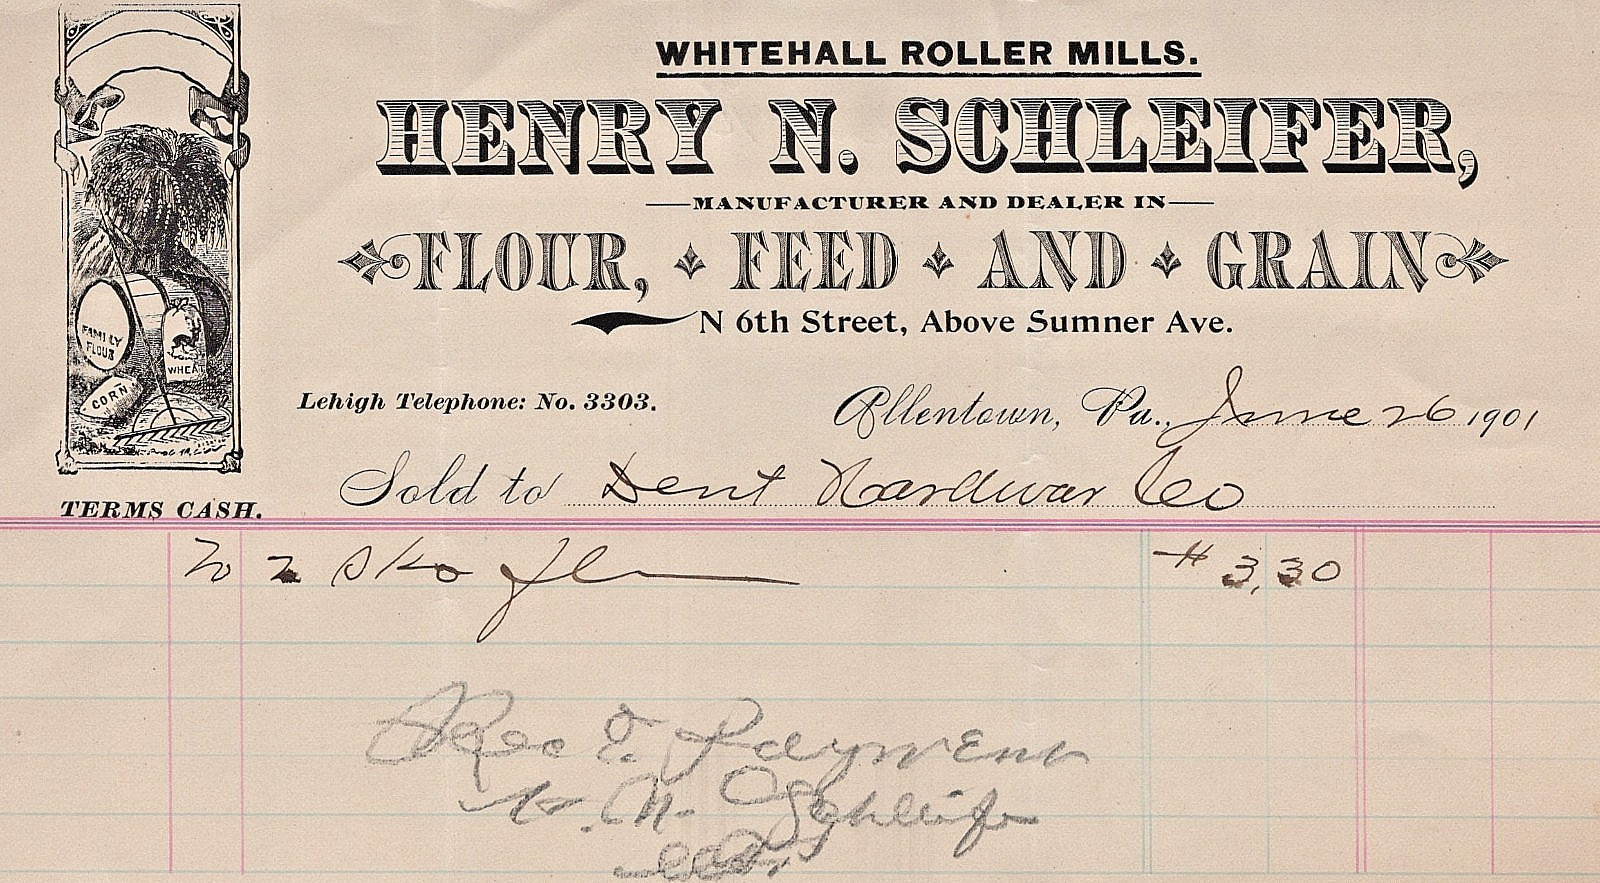 WHITEHALL ROLLER MILLS.
HENRY N. SCHLEIFER,
MANUFACTURER AND DEALER IN
FLOUR, FEED AND GRAIN
N 6th Street, Above Sumner Ave.
FAMILY FLOUR
WHEAT
CORN
Lehigh Telephone: No. 3303.
Allentown, Pa., June 26 1901
Sold to Dent Hardwar Co
TERMS CASH.
To 2 Sks Fl $3.30
Rec Payment
H. N. Schleifer